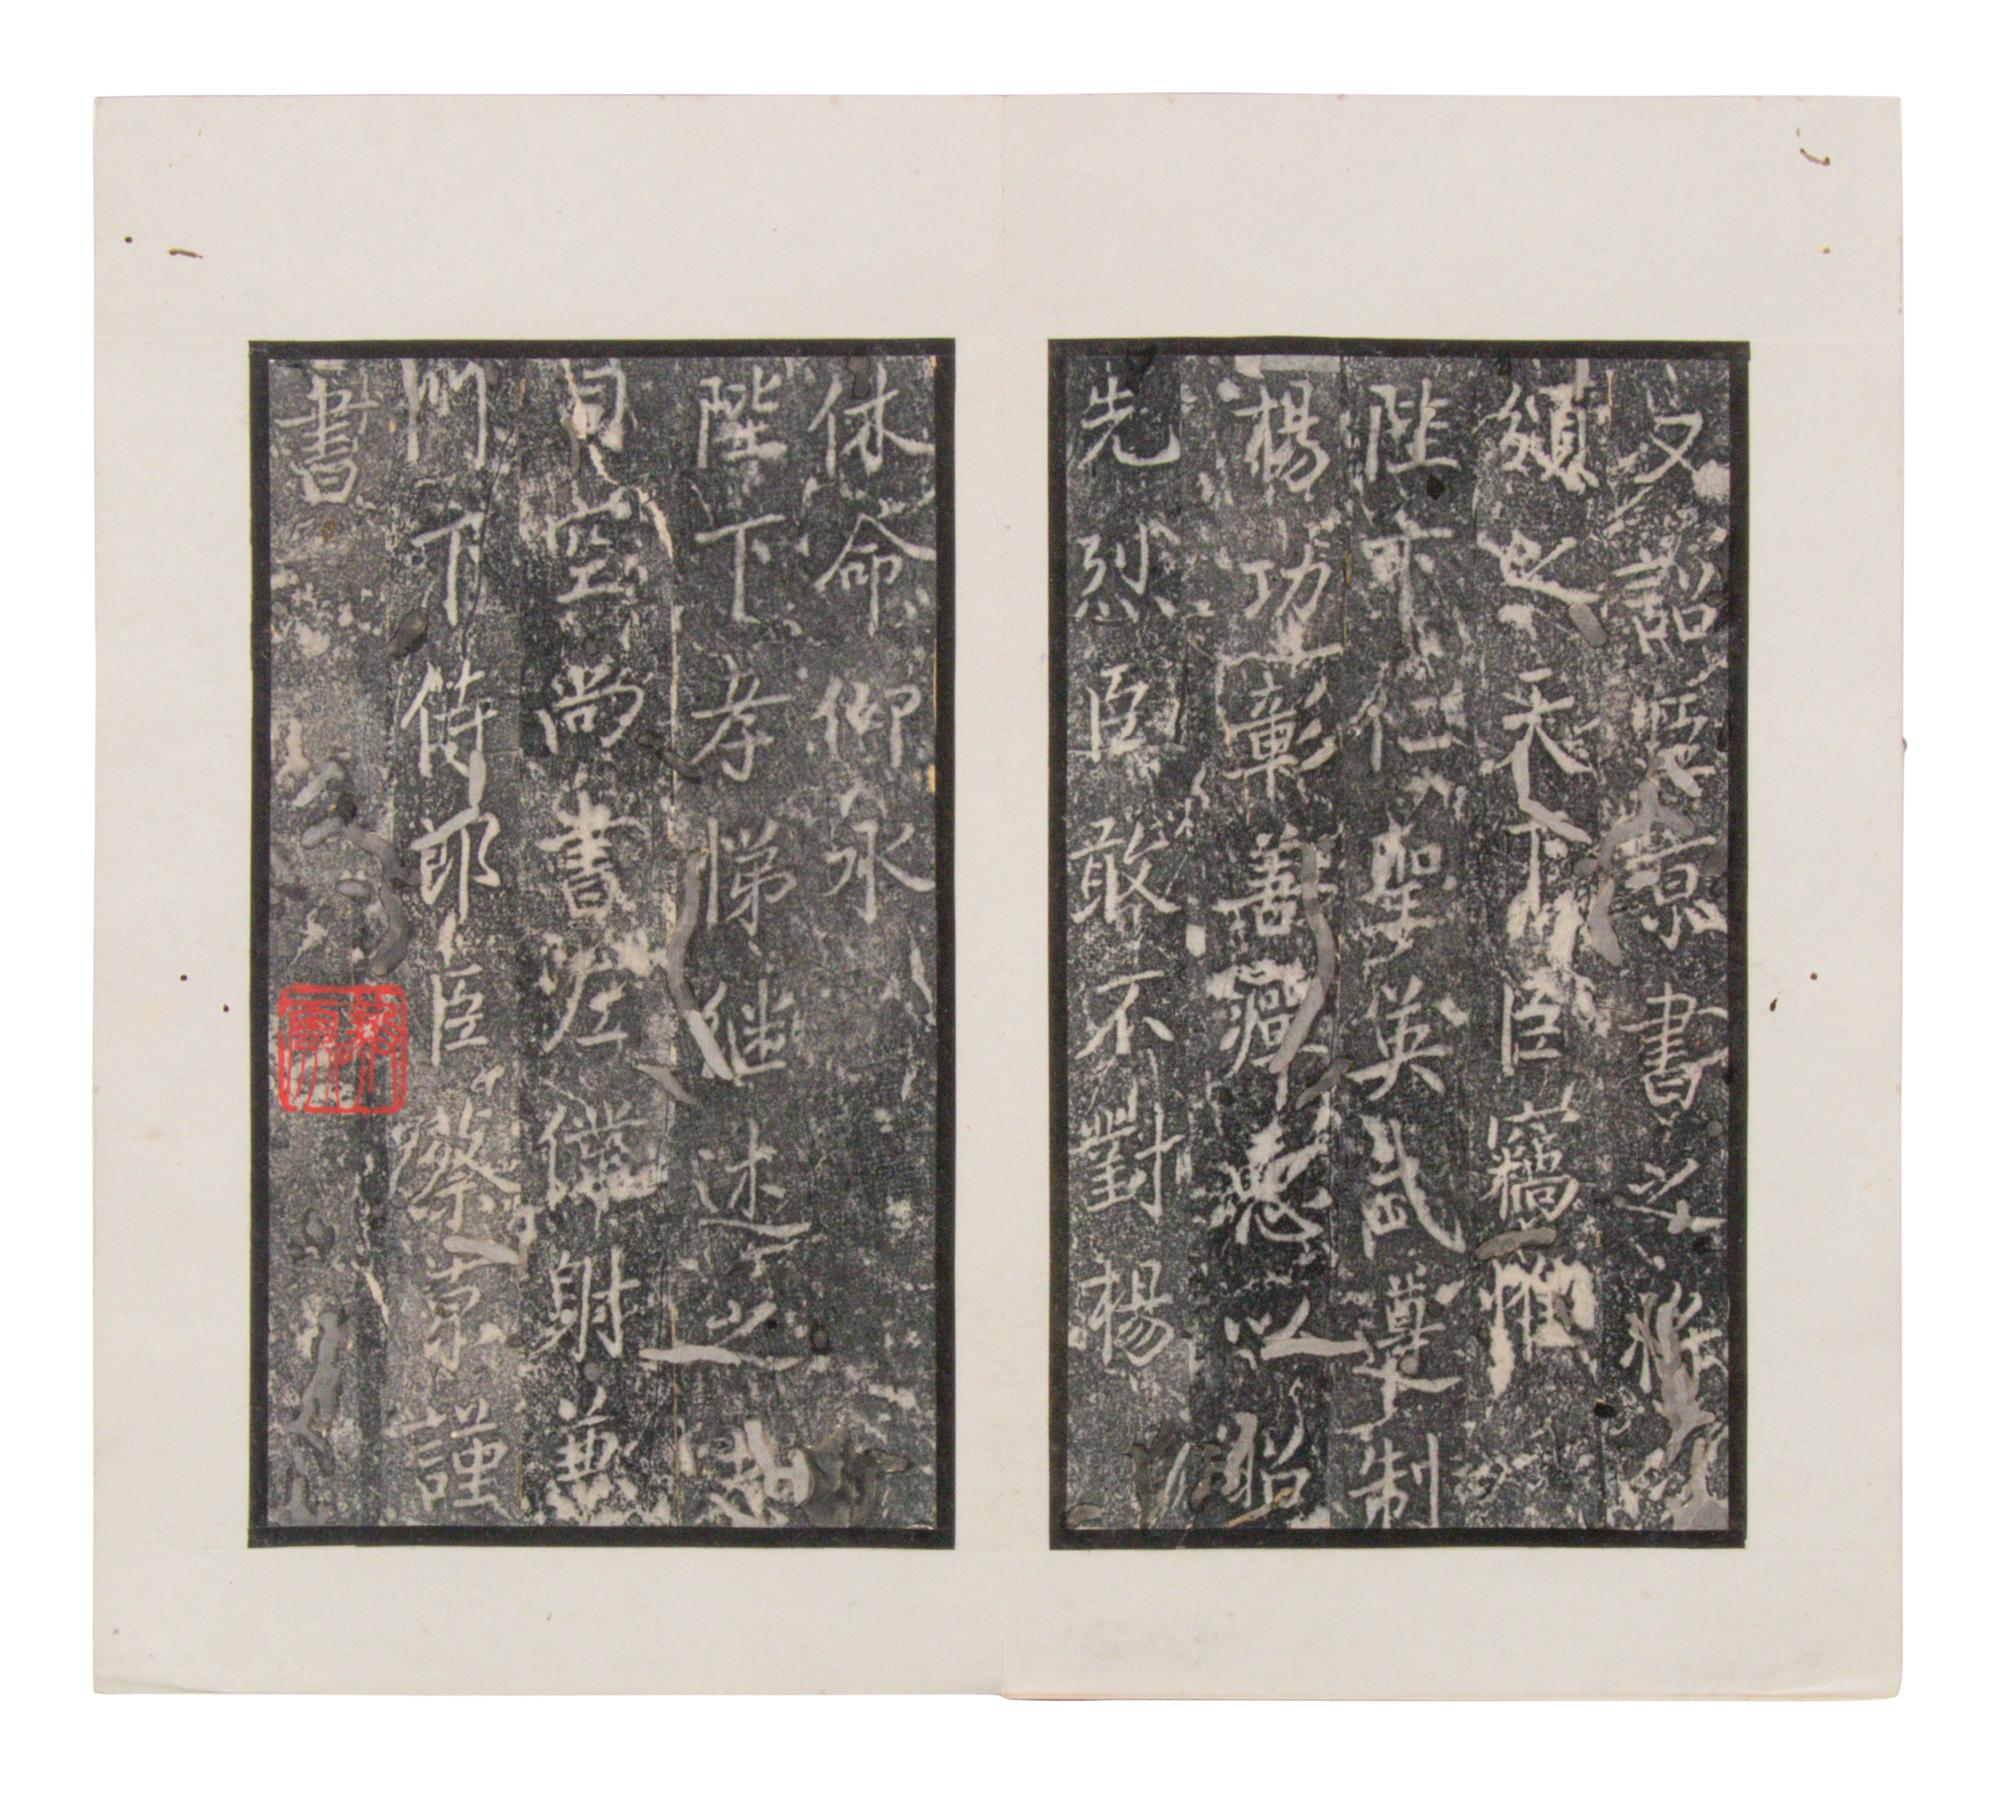 又詔臣京書之將
頒之天下臣竊惟
陛下仁聖英武遵制
揚功彰善癉惡以昭
先烈臣敢不對揚
休命仰承
陛下孝悌繼述之志
司空尚書左僕射兼
門下侍郎臣蔡京謹
書